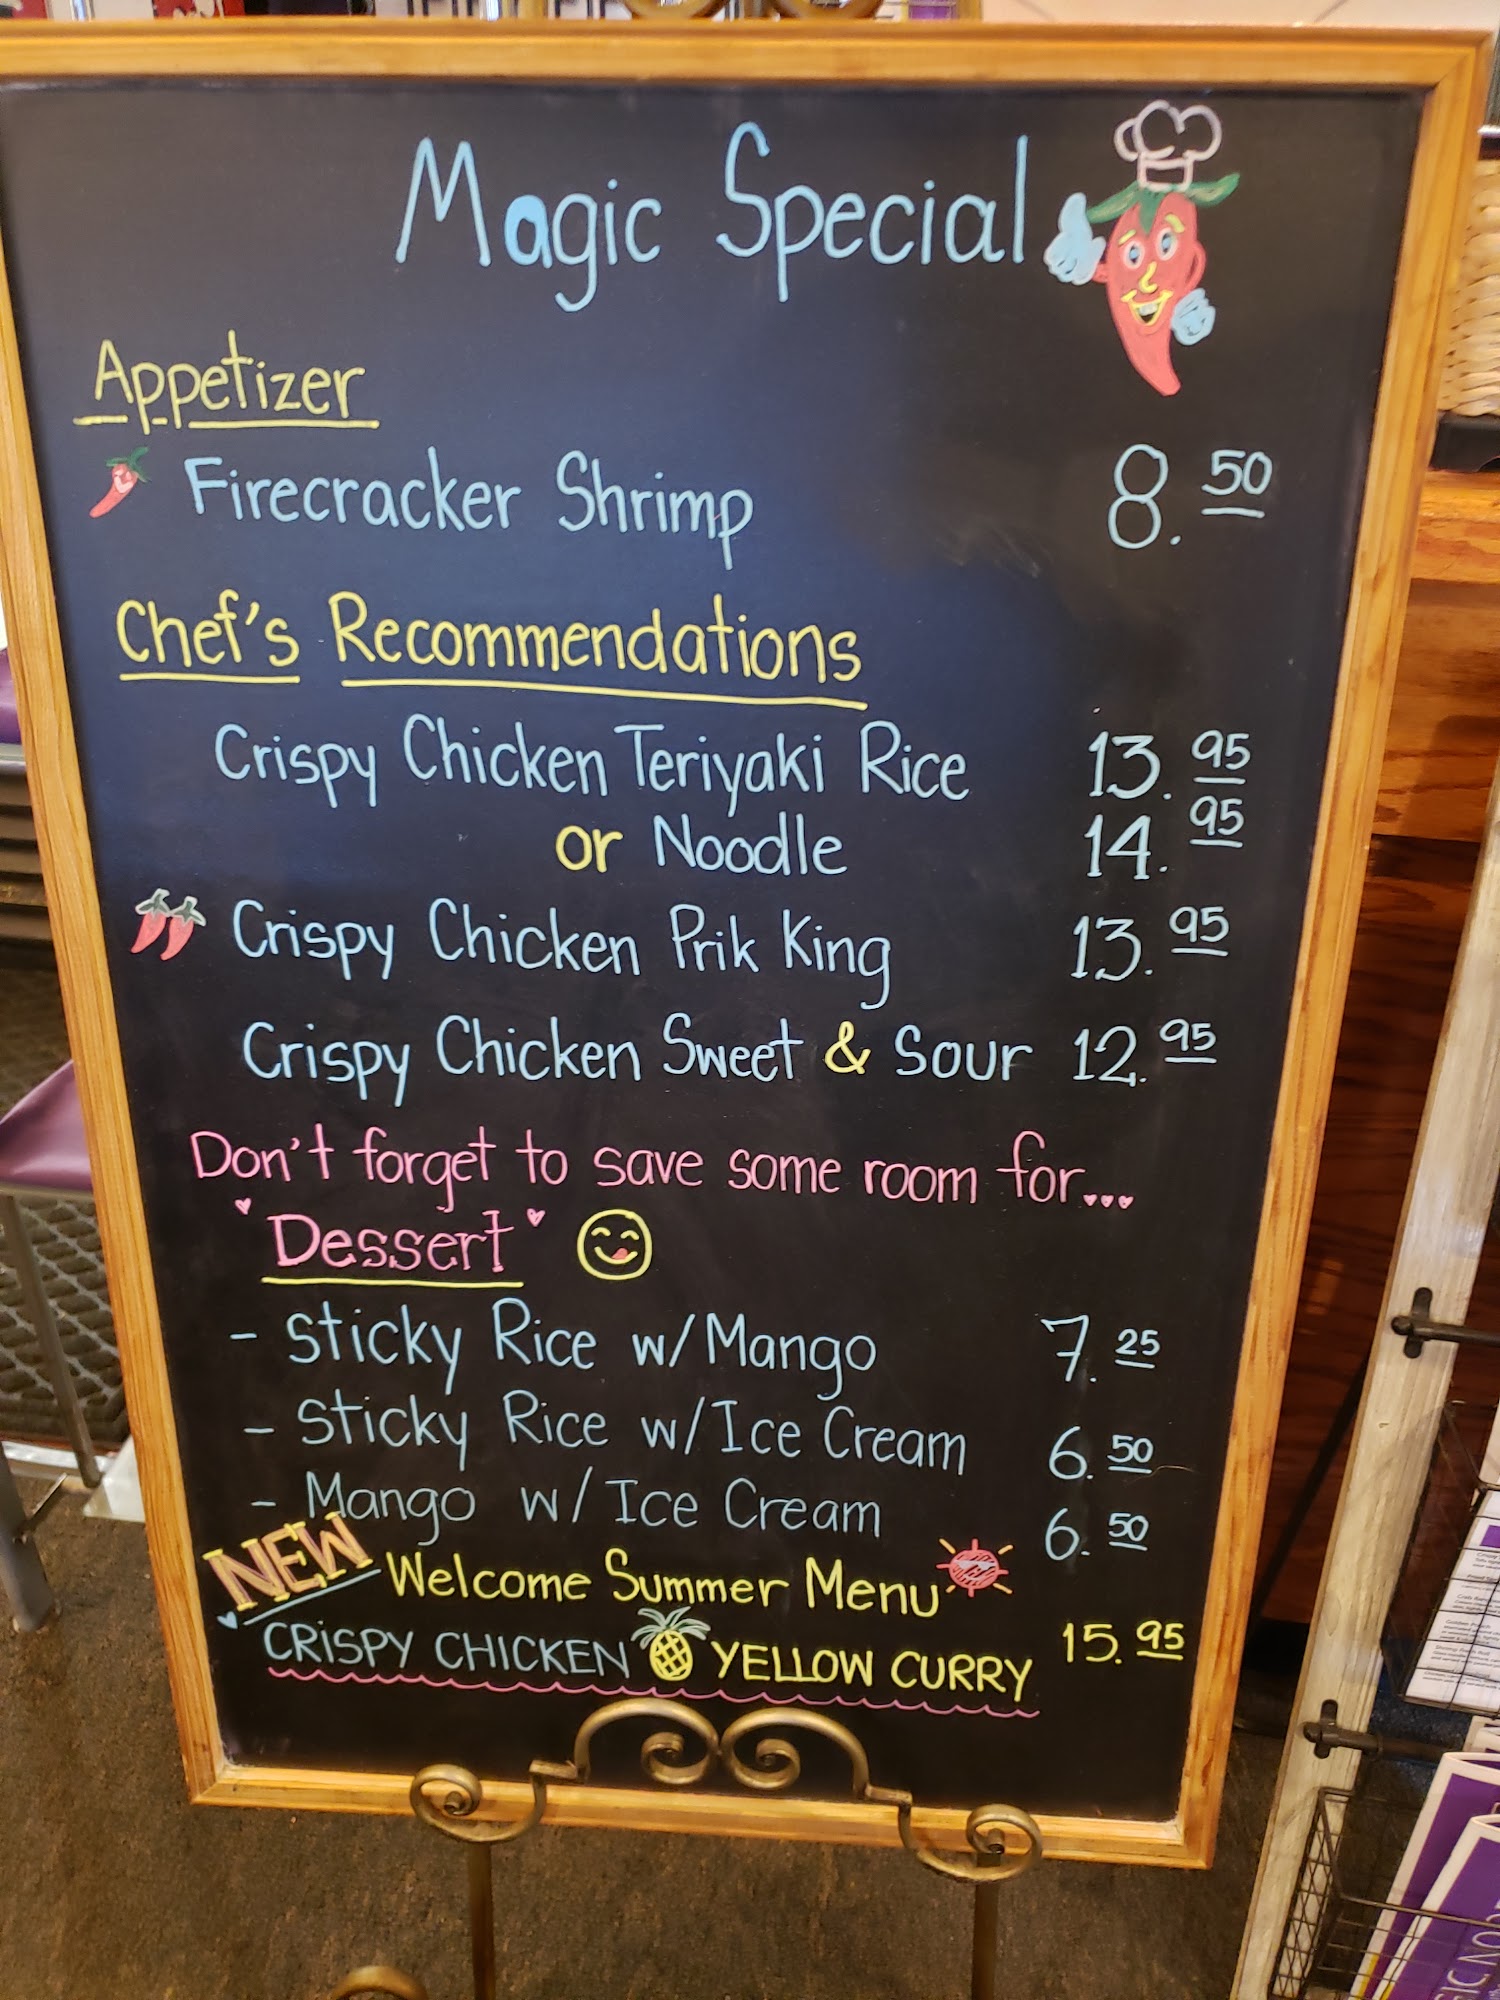 Magic Special
Appetizer
Firecracker Shrimp 8.50
Chef's Recommendations
Crispy Chicken Teriyaki Rice 13.95
or Noodle 14.95
Crispy Chicken Prik King 13.95
Crispy Chicken Sweet & Sour 12.95
Don't forget to save some room for...
"Dessert"
- Sticky Rice w/ Mango 7.25
- Sticky Rice w/ Ice Cream 6.50
- Mango w/ Ice Cream 6.50
NEW Welcome Summer Menu
CRISPY CHICKEN YELLOW CURRY 15.95